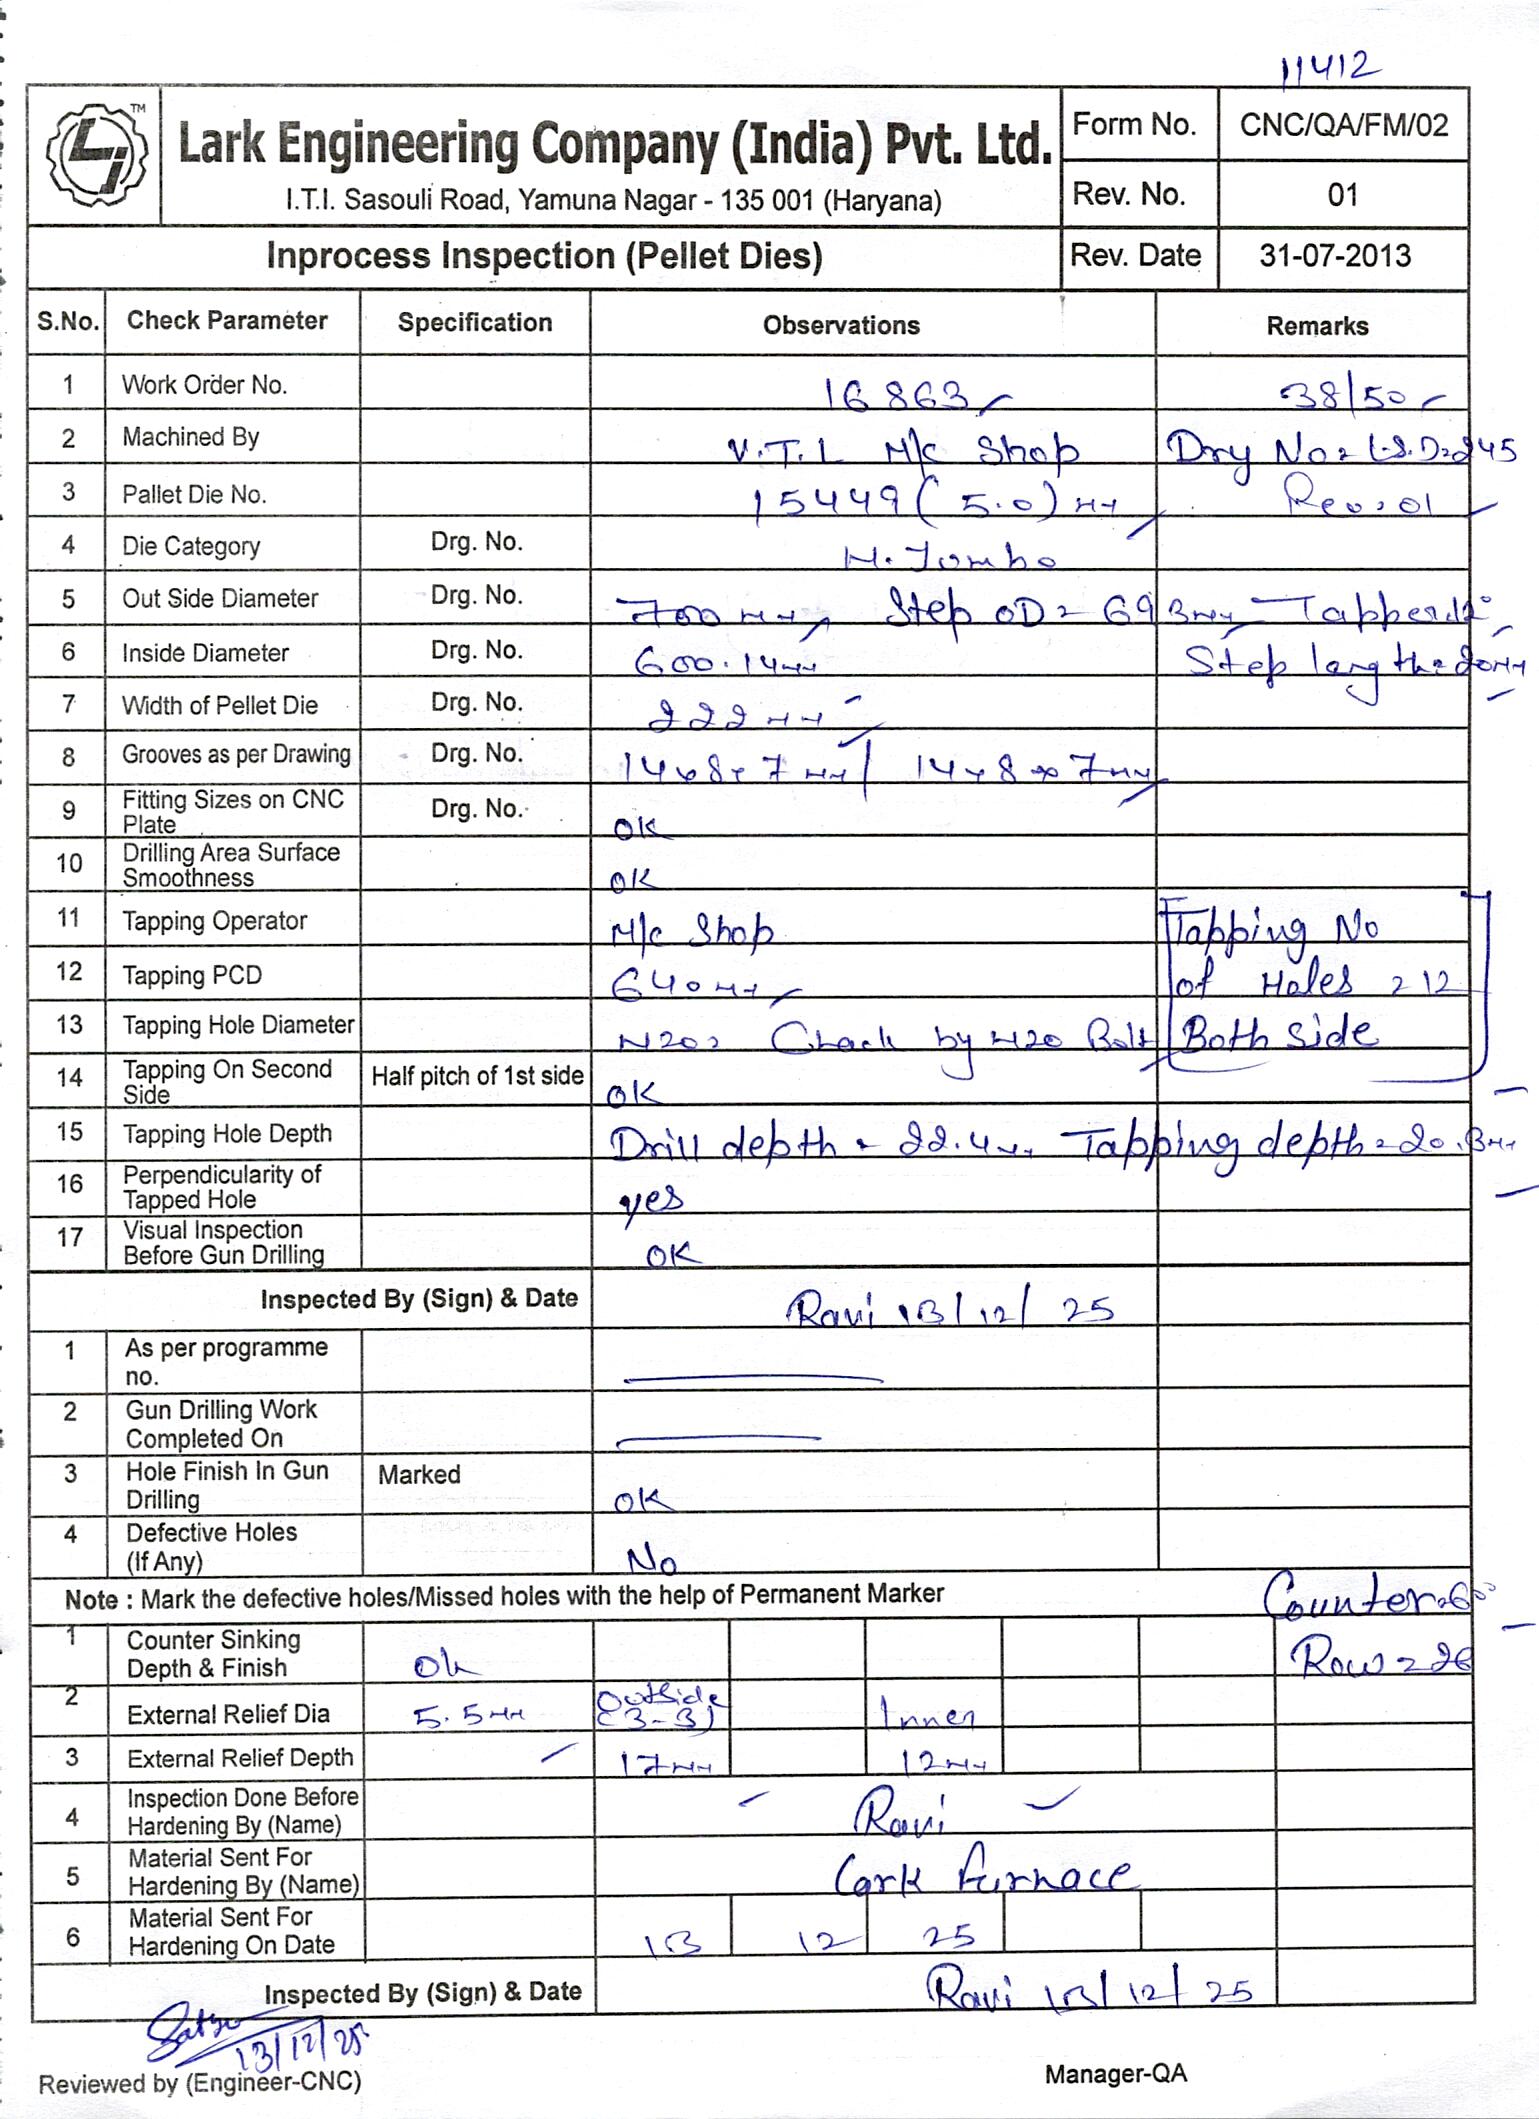 11412
TM
Lark Engineering Company (India) Pvt. Ltd.
I.T.I. Sasouli Road, Yamuna Nagar - 135 001 (Haryana)
Form No. CNC/QA/FM/02
Rev. No. 01
Inprocess Inspection (Pellet Dies) Rev. Date 31-07-2013
S.No. Check Parameter Specification Observations Remarks
1 Work Order No. 16863 38/50
2 Machined By V.T.L M/c Shop Dry No = L.S.D=245
3 Pallet Die No. 15449 (5.0) MM Rev: 01
4 Die Category Drg. No.
5 Out Side Diameter Drg. No. 700 MM Step OD = 693MM Tapper
6 Inside Diameter Drg. No. 600.14MM Step length = 20MM
7 Width of Pellet Die Drg. No. 222 MM
8 Grooves as per Drawing Drg. No. 14x8x7MM / 14x8x7MM
9 Fitting Sizes on CNC
Plate Drg. No. OK
10 Drilling Area Surface
Smoothness OK
11 Tapping Operator M/c Shop Tapping No
12 Tapping PCD 640MM of Holes = 12
13 Tapping Hole Diameter M20 = Chack by M20 Bolt Both Side
14 Tapping On Second
Side Half pitch of 1st side OK
15 Tapping Hole Depth Drill depth = 22.4MM Tapping depth = 20.3MM
16 Perpendicularity of
Tapped Hole yes
17 Visual Inspection
Before Gun Drilling OK
Inspected By (Sign) & Date Ravi 13/12/25
1 As per programme
no.
2 Gun Drilling Work
Completed On
3 Hole Finish In Gun
Drilling Marked OK
4 Defective Holes
(If Any) No
Note : Mark the defective holes/Missed holes with the help of Permanent Marker Counter=60°
1 Counter Sinking
Depth & Finish Ok Row = 26
2 External Relief Dia 5.5MM Outside (3-3) Inner
3 External Relief Depth 17MM 12MM
4 Inspection Done Before
Hardening By (Name) Ravi
5 Material Sent For
Hardening By (Name) Lark Furnace
6 Material Sent For
Hardening On Date 13 12 25
Inspected By (Sign) & Date Ravi 13/12/25
13/12/25
Reviewed by (Engineer-CNC) Manager-QA